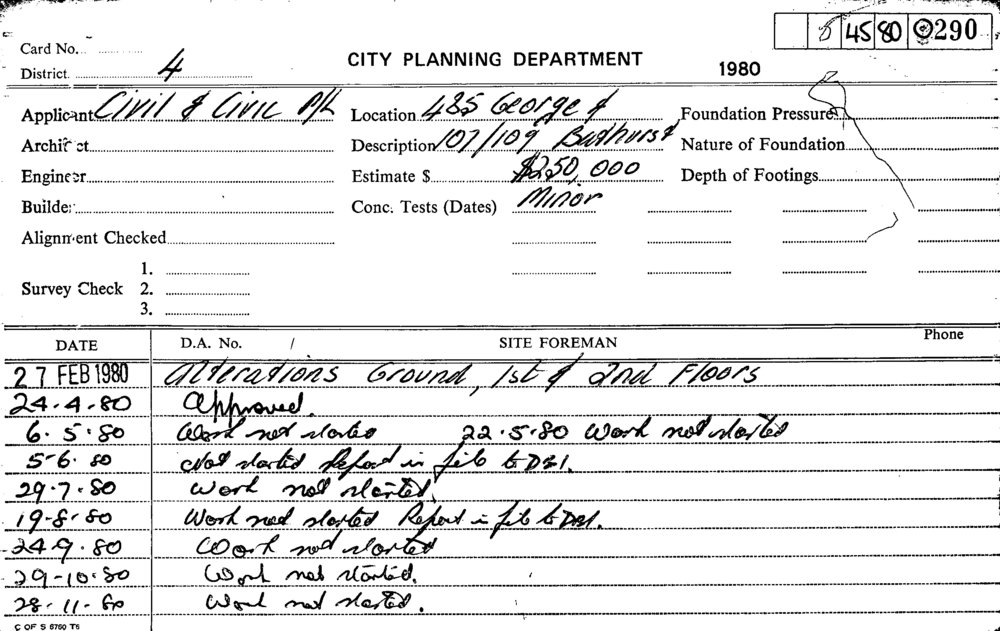 5 45 80 0290
Card No.
District. 4
CITY PLANNING DEPARTMENT
1980
Applicant Civil & Civic P/L Location 485 George & Foundation Pressure
Architect Description 107/109 Bathurst Nature of Foundation
Engineer Estimate $ $250,000 Depth of Footings
Builder Conc. Tests (Dates) Minor
Alignment Checked
1.
Survey Check 2.
3.
DATE D.A. No. / SITE FOREMAN Phone
27 FEB 1980 Alterations Ground, 1st & 2nd Floors
24.4.80 Approved.
6.5.80 Work not started 22.5.80 Work not started
5-6.80 Not started Report in file to DBI.
29.7.80 Work not started.
19-8-80 Work not started Report in file to DBI.
24.9.80 Work not started
29-10.80 Work not started.
28-11-80 Work not started.
C OF S 6760 T6